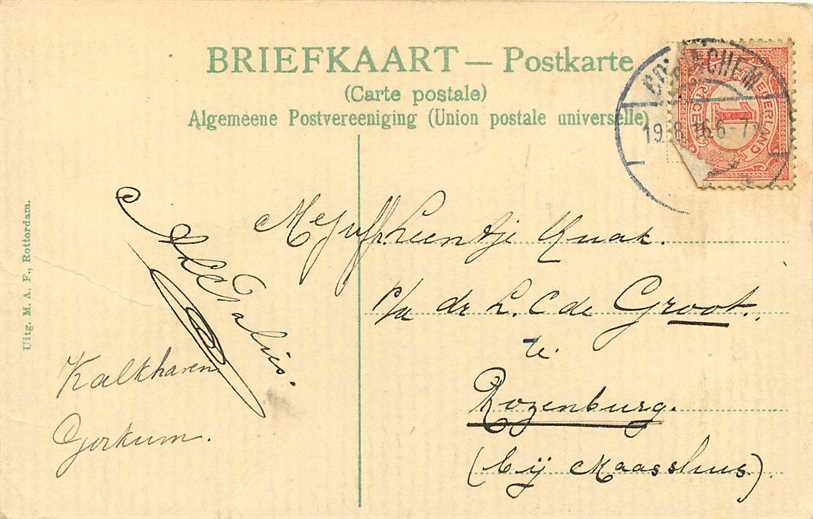 BRIEFKAART — Postkarte
(Carte postale)
Algemeene Postvereeniging (Union postale universelle)
GORINCHEM
19.8.16.6-7
NEDERLAND
1
CENT
Uitg. M. A. F., Rotterdam.
Kalkhaven
Gorkum.
Mejuffr Leentje Kwak.
p/a dr L. C de Groot.
te
Rozenburg.
(bij Maassluis).